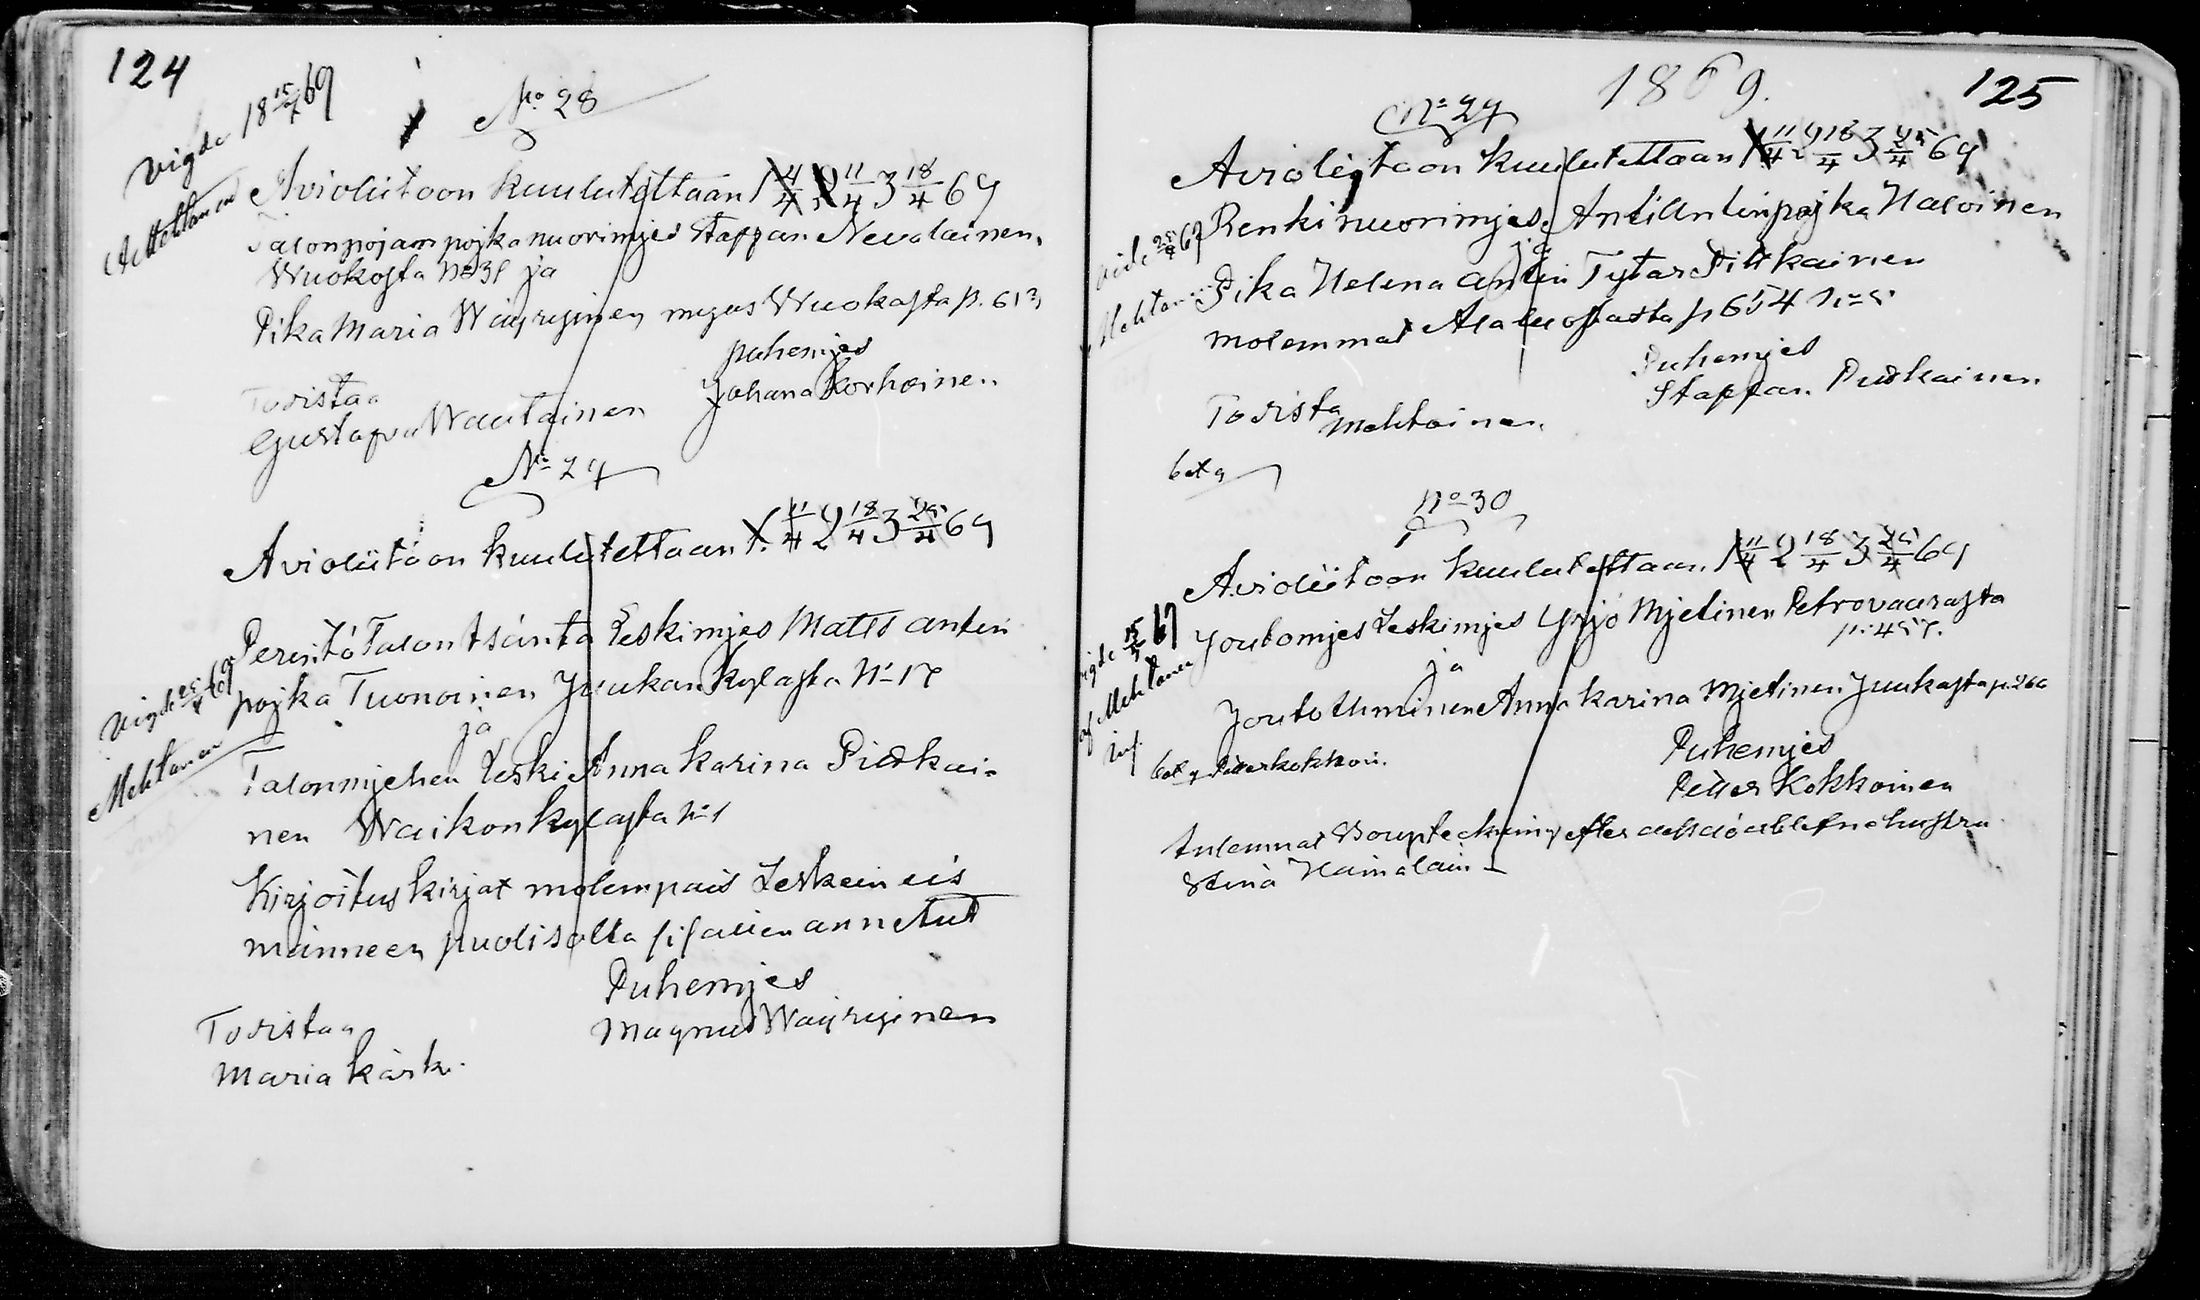 124
vigde 18 15/4 69
A Mehtonen
No 28
Avioliitoon kuulutettaan 1 4/4 2 11/4 3 18/4 69
Talonpojam pojka nuorimjes Stappan Nevalainen
Wuokosta No 38 ja
Pika Maria Wäyryinen myös Wuokosta p. 613
puhemjes
Johana Korhoinen.
Todistaa
Gustava Wautainen
No 29
Avioliitoon kuulutettaan 1. 11/4 2 18/4 3 25/4 69
vigde 25/4 69
Mehtonen
Perintö Talon Isäntä Leskimjes Matts anten
pojka Tuonoinen Juukan kylästa No 17
ja
Talonmjehen Leski Anna Karina Pitkäi-
nen Waikon kylästa No 1
Kirjoitus kirjat molempais Leskein eis
männeen puolisolta sisällen annetut
Puhemjes
Magnus Wäyryinen
Todistaa
Maria Kärk.
1869.
125
No 29
Avioliitoon kuulutettaan 1 11/4 2 18/4 3 25/4 69
Renki nuorimjes Antti Antinpojka Haloinen
ja
Pika Helena Antin Tytar Pitkäinen
molemmat Alaluostasta p 654 No 5
Puhemjes
Stappan Pitkäinen
Todista
Mehtoinen
bet 9
No 30
Avioliitoon kuulutettaan 1 11/4 2 18/4 3 25/4 69
vigde 15/5 69
af Mehtonen
inf.
Joutomjes Leskimjes Yrjö Mjetinen Petrovaarasta
p. 457.
ja
Jouto Ihminen Anna Karina Mjetinen Juukasta p. 260
Puhemjes
Petter Kokkoinen
bet 9 Petter kokkoin.
Inlemnat Boupteckning efter aflidna hustru
Stina Hämäläin